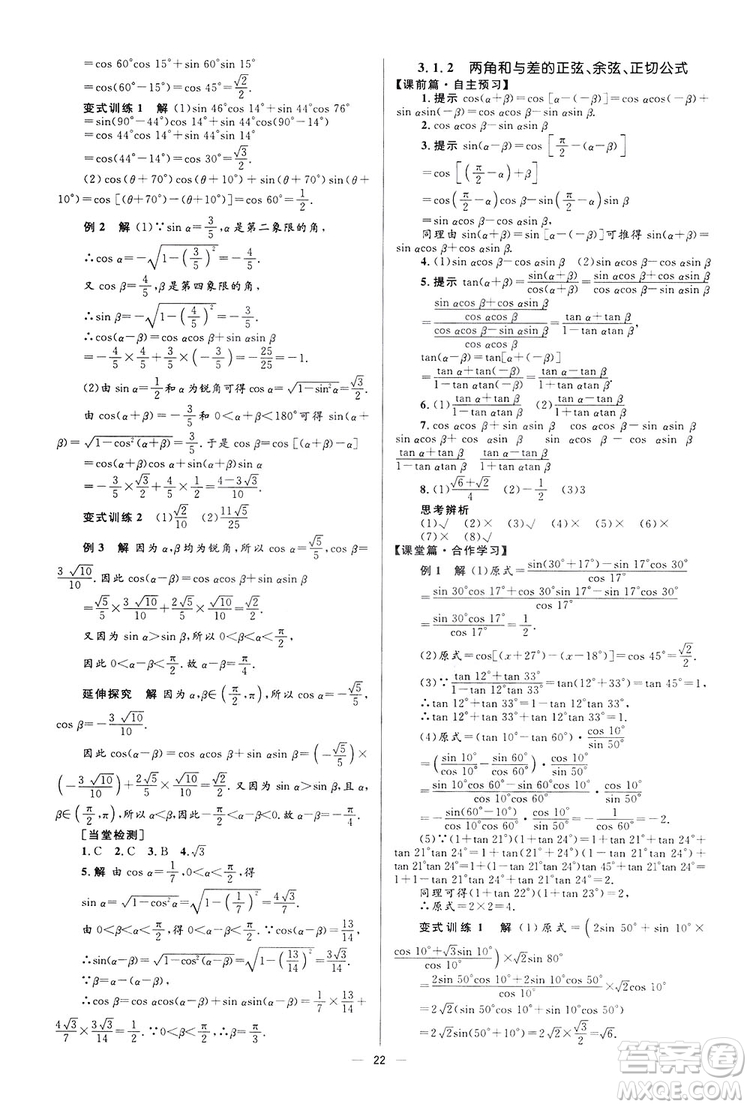 =cos 60°cos 15°+sin 60°sin 15°
=cos(60°-15°)=cos 45°=√2/2.
变式训练 1 解 (1)sin 46°cos 14°+sin 44°cos 76°
=sin(90°-44°)cos 14°+sin 44°cos(90°-14°)
=cos 44°cos 14°+sin 44°sin 14°
=cos(44°-14°)=cos 30°=√3/2.
(2)cos(θ+70°)cos(θ+10°)+sin(θ+70°)sin(θ+
10°)=cos[(θ+70°)-(θ+10°)]=cos 60°=1/2.
例 2 解 (1)∵sin α=3/5,α是第二象限的角,
∴cos α=-√(1-(3/5)²)=-4/5.
又 cos β=4/5,β是第四象限的角,
∴sin β=-√(1-(4/5)²)=-3/5.
∴cos(α-β)=cos αcos β+sin αsin β
=-4/5×4/5+3/5×(-3/5)=-25/25=-1.
(2)由 sin α=1/2和α为锐角可得 cos α=√(1-sin²α)=√3/2.
由 cos(α+β)=-3/5和 0<α+β<180°可得 sin(α+
β)=√(1-cos²(α+β))=4/5. 于是 cos β=cos[(α+β)-α]
=cos(α+β)cos α+sin(α+β)sin α
=-3/5×√3/2+4/5×1/2=(4-3√3)/10.
变式训练 2 (1)√2/10 (2)11√5/25
例 3 解 因为α,β均为锐角,所以 cos α=√5/5,cos β=
3√10/10. 因此 cos(α-β)=cos αcos β+sin αsin β
=√5/5×3√10/10+2√5/5×√10/10=√2/2.
又因为 sin α>sin β,所以 0<β<α<π/2,
所以 0<α-β<π/2. 故α-β=π/4.
延伸探究 解 因为α,β∈(π/2,π),所以 cos α=-√5/5,
cos β=-3√10/10.
因此 cos(α-β)=cos αcos β+sin αsin β=(-√5/5)×
(-3√10/10)+2√5/5×√10/10=√2/2. 又因为 sin α>sin β,α,
β∈(π/2,π),所以α<β,所以-π/2<α-β<0. 故α-β=-π/4.
[当堂检测]
1. C 2. C 3. B 4. √3
5. 解 由 cos α=1/7,0<α<π/2,得
sin α=√(1-cos²α)=√(1-(1/7)²)=4√3/7.
由 0<β<α<π/2,得 0<α-β<π/2. ∵cos(α-β)=13/14,
∴sin(α-β)=√(1-cos²(α-β))=√(1-(13/14)²)=3√3/14.
∵β=α-(α-β),
∴cos β=cos αcos(α-β)+sin αsin(α-β)=1/7×13/14+
4√3/7×3√3/14=1/2. ∵0<β<π/2,∴β=π/3.
3.1.2 两角和与差的正弦、余弦、正切公式
【课前篇·自主预习】
1. 提示 cos(α+β)=cos[α-(-β)]=cos αcos(-β)+
sin αsin(-β)=cos αcos β-sin αsin β.
2. cos αcos β-sin αsin β
3. 提示 sin(α+β)=cos[π/2-(α+β)]
=cos[(π/2-α)-β]
=cos(π/2-α)cos β+sin(π/2-α)sin β
=sin αcos β+cos αsin β,
同理由 sin(α-β)=sin[α+(-β)]可推得 sin(α-β)=
sin αcos β-cos αsin β.
4. (1)sin αcos β+cos αsin β (2)sin αcos β-cos αsin β
5. 提示 tan(α+β)=sin(α+β)/cos(α+β)=(sin αcos β+cos αsin β)/(cos αcos β-sin αsin β)=
((sin αcos β+cos αsin β)/(cos αcos β))/((cos αcos β-sin αsin β)/(cos αcos β))=(tan α+tan β)/(1-tan αtan β),
tan(α-β)=tan[α+(-β)]
=(tan α+tan(-β))/(1-tan αtan(-β))=(tan α-tan β)/(1+tan αtan β).
6. (1)(tan α+tan β)/(1-tan αtan β) (2)(tan α-tan β)/(1+tan αtan β)
7. cos αcos β-sin αsin β sin αcos β+cos αsin β
(tan α+tan β)/(1-tan αtan β) (tan α-tan β)/(1+tan αtan β)
8. (1)(√6+√2)/4 (2)-1/2 (3)3
思考辨析
(1)√ (2)× (3)√ (4)× (5)× (6)×
(7)× (8)√
【课堂篇·合作学习】
例 1 解 (1)原式=(sin(30°+17°)-sin 17°cos 30°)/cos 17°
=(sin 30°cos 17°+cos 30°sin 17°-sin 17°cos 30°)/cos 17°
=(sin 30°cos 17°)/cos 17°=sin 30°=1/2.
(2)原式=cos[(x+27°)-(x-18°)]=cos 45°=√2/2.
(3)∵(tan 12°+tan 33°)/(1-tan 12°tan 33°)=tan(12°+33°)=tan 45°=1,
∴tan 12°+tan 33°=1-tan 12°tan 33°.
∴原式=1-tan 12°tan 33°+tan 12°tan 33°=1.
(4)原式=(tan 10°-tan 60°)·cos 10°/sin 50°
=(sin 10°/cos 10°-sin 60°/cos 60°)·cos 10°/sin 50°
=sin(-50°)/(cos 10°cos 60°)·cos 10°/sin 50°=-1/cos 60°=-2.
(5)∵(1+tan 21°)(1+tan 24°)=1+tan 21°+
tan 24°+tan 21°tan 24°=1+tan(21°+24°)(1-
tan 21°tan 24°)+tan 21°tan 24°=1+1-tan 21°tan 24°+
tan 21°tan 24°=2.
同理可得(1+tan 22°)(1+tan 23°)=2,
∴原式=2×2=4.
变式训练 1 解 (1)原式=(2sin 50°+sin 10°·
(cos 10°+√3sin 10°)/cos 10°)×√2sin 80°
=(2sin 50°cos 10°+2sin 10°cos 50°)/cos 10°·√2cos 10°
=2√2(sin 50°cos 10°+sin 10°cos 50°)
=2√2sin(50°+10°)=2√2×√3/2=√6.
22
答案圈